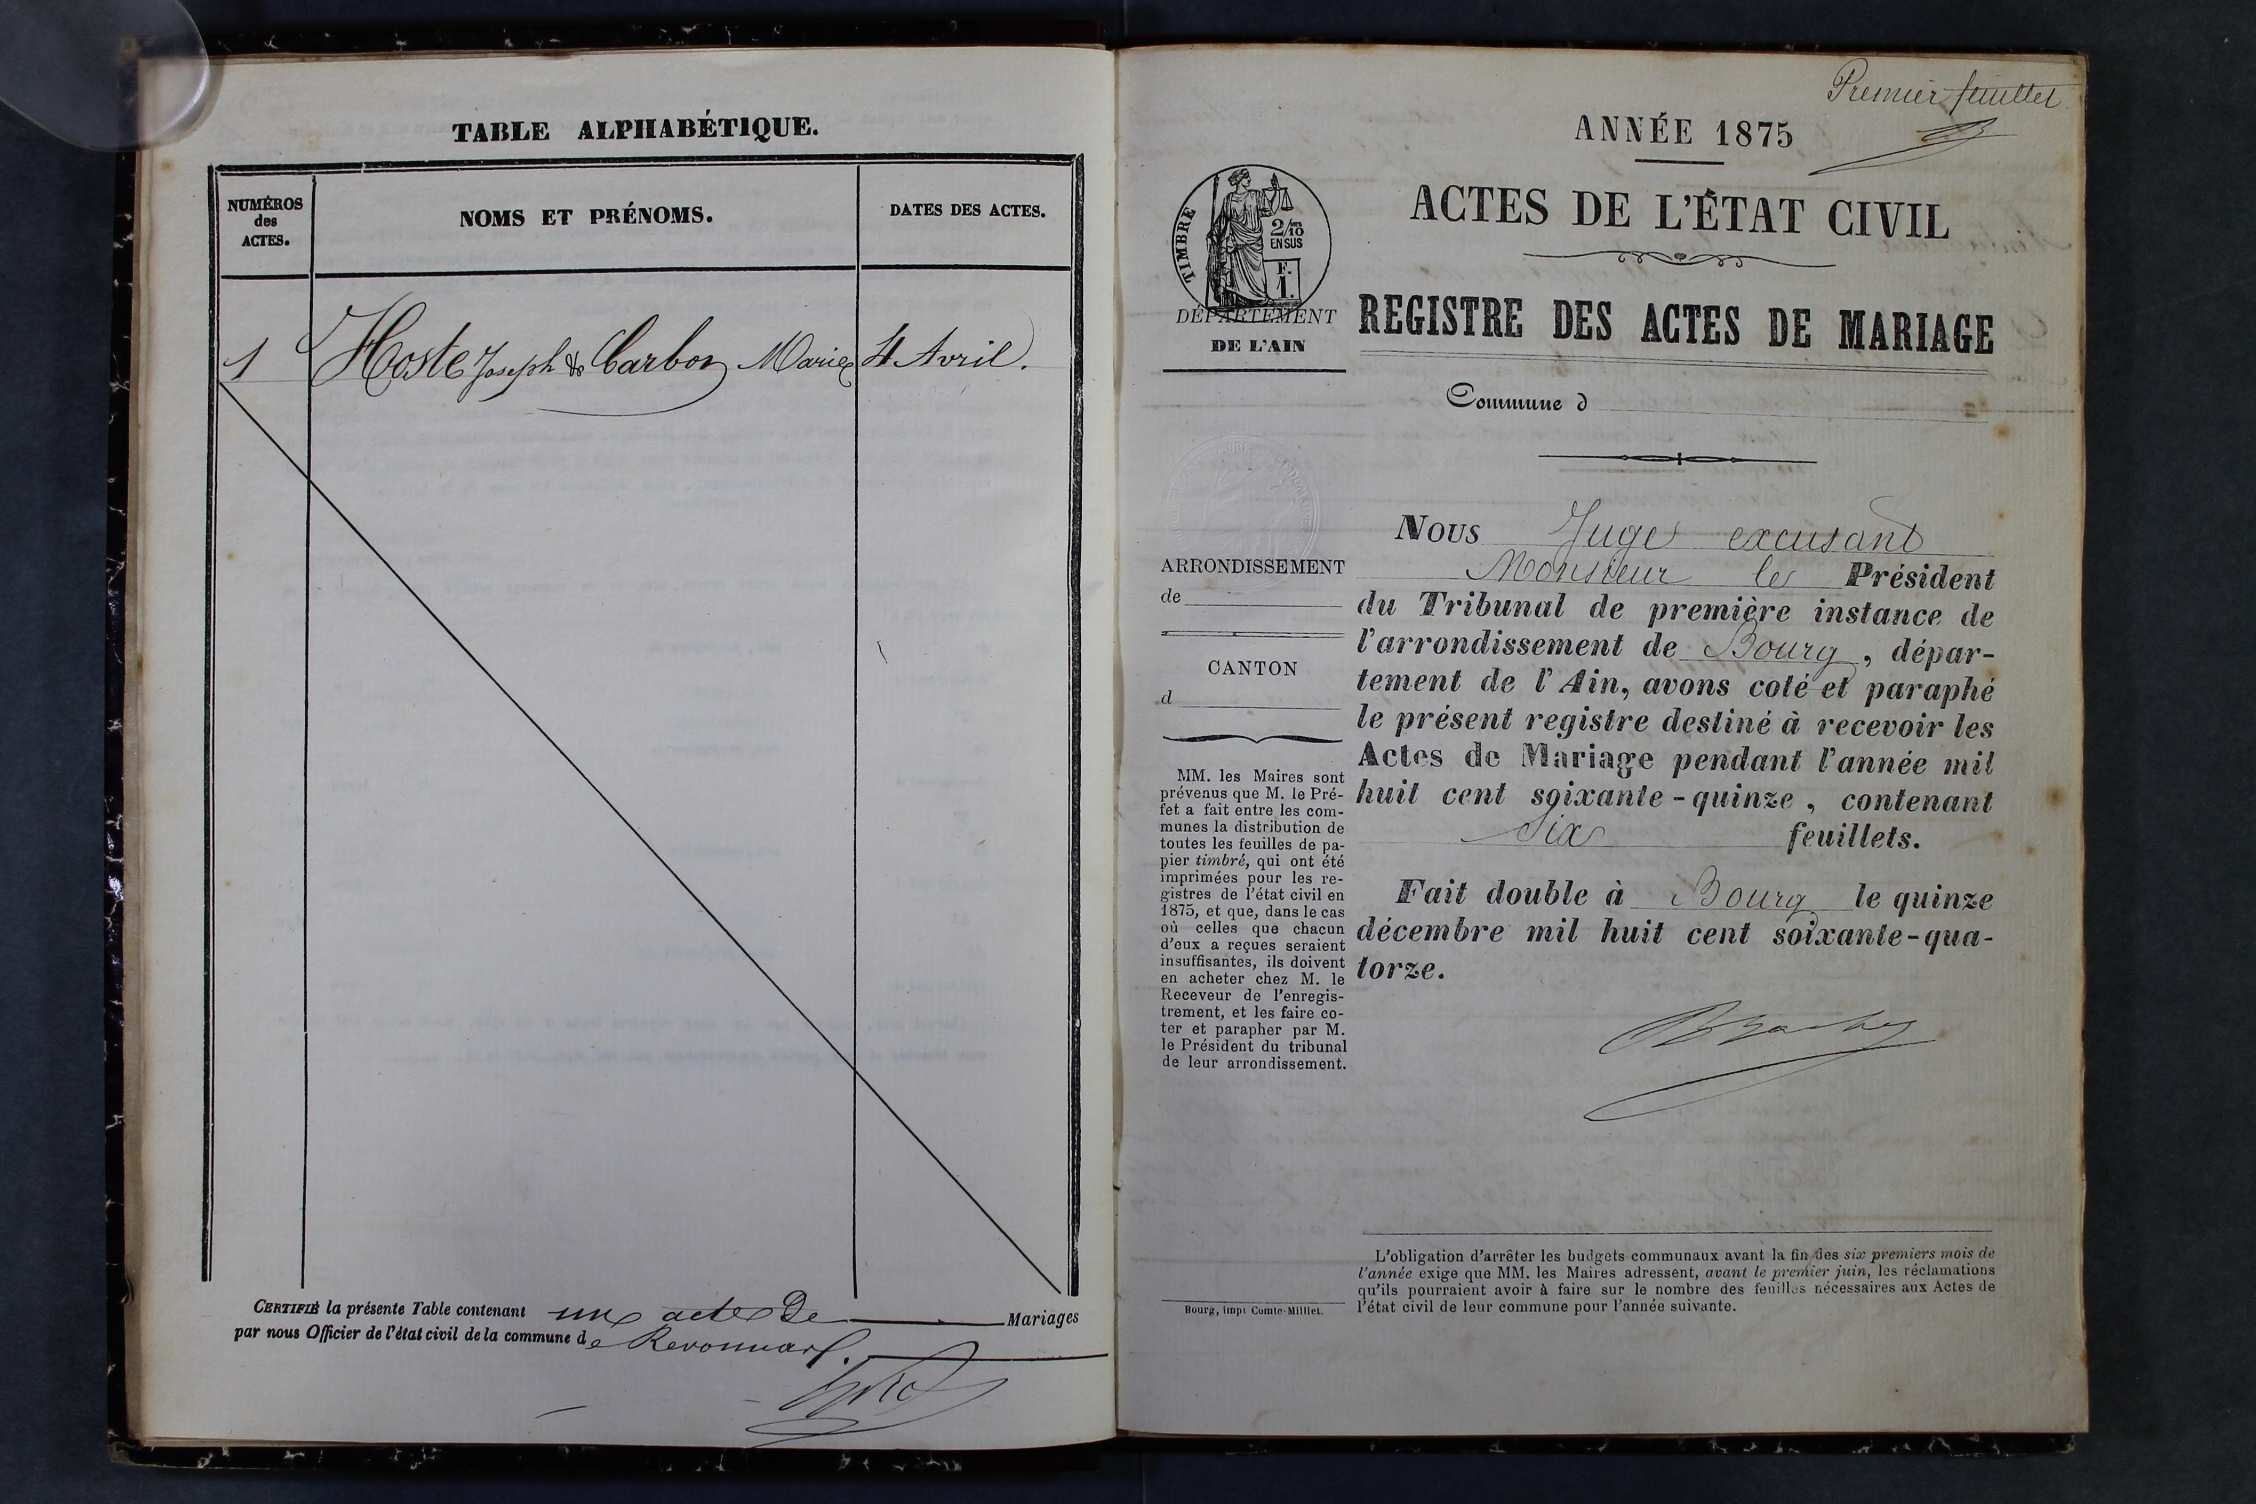 TABLE ALPHABÉTIQUE.
NUMÉROS
des
ACTES.
NOMS ET PRÉNOMS.
DATES DES ACTES.
1 Hoste Joseph & Carbon Marie 4 Avril.
CERTIFIÉ la présente Table contenant un acte De Mariages
par nous Officier de l'état civil de la commune de Revonnas.
Premier feuillet
ANNÉE 1875
ACTES DE L'ÉTAT CIVIL
TIMBRE
2/10
EN SUS
F.
1.
DÉPARTEMENT
DE L'AIN
REGISTRE DES ACTES DE MARIAGE
Commune d
ARRONDISSEMENT
de
CANTON
d
MM. les Maires sont
prévenus que M. le Pré-
fet a fait entre les com-
munes la distribution de
toutes les feuilles de pa-
pier timbré, qui ont été
imprimées pour les re-
gistres de l'état civil en
1875, et que, dans le cas
où celles que chacun
d'eux a reçues seraient
insuffisantes, ils doivent
en acheter chez M. le
Receveur de l'enregis-
trement, et les faire co-
ter et parapher par M.
le Président du tribunal
de leur arrondissement.
Bourg, imp. Comte-Milliet.
Nous Juge excusant
Monsieur le Président
du Tribunal de première instance de
l'arrondissement de Bourg, dépar-
tement de l'Ain, avons coté et paraphé
le présent registre destiné à recevoir les
Actes de Mariage pendant l'année mil
huit cent soixante-quinze, contenant
Six feuillets.
Fait double à Bourg le quinze
décembre mil huit cent soixante-qua-
torze.
L'obligation d'arrêter les budgets communaux avant la fin des six premiers mois de
l'année exige que MM. les Maires adressent, avant le premier juin, les réclamations
qu'ils pourraient avoir à faire sur le nombre des feuilles nécessaires aux Actes de
l'état civil de leur commune pour l'année suivante.